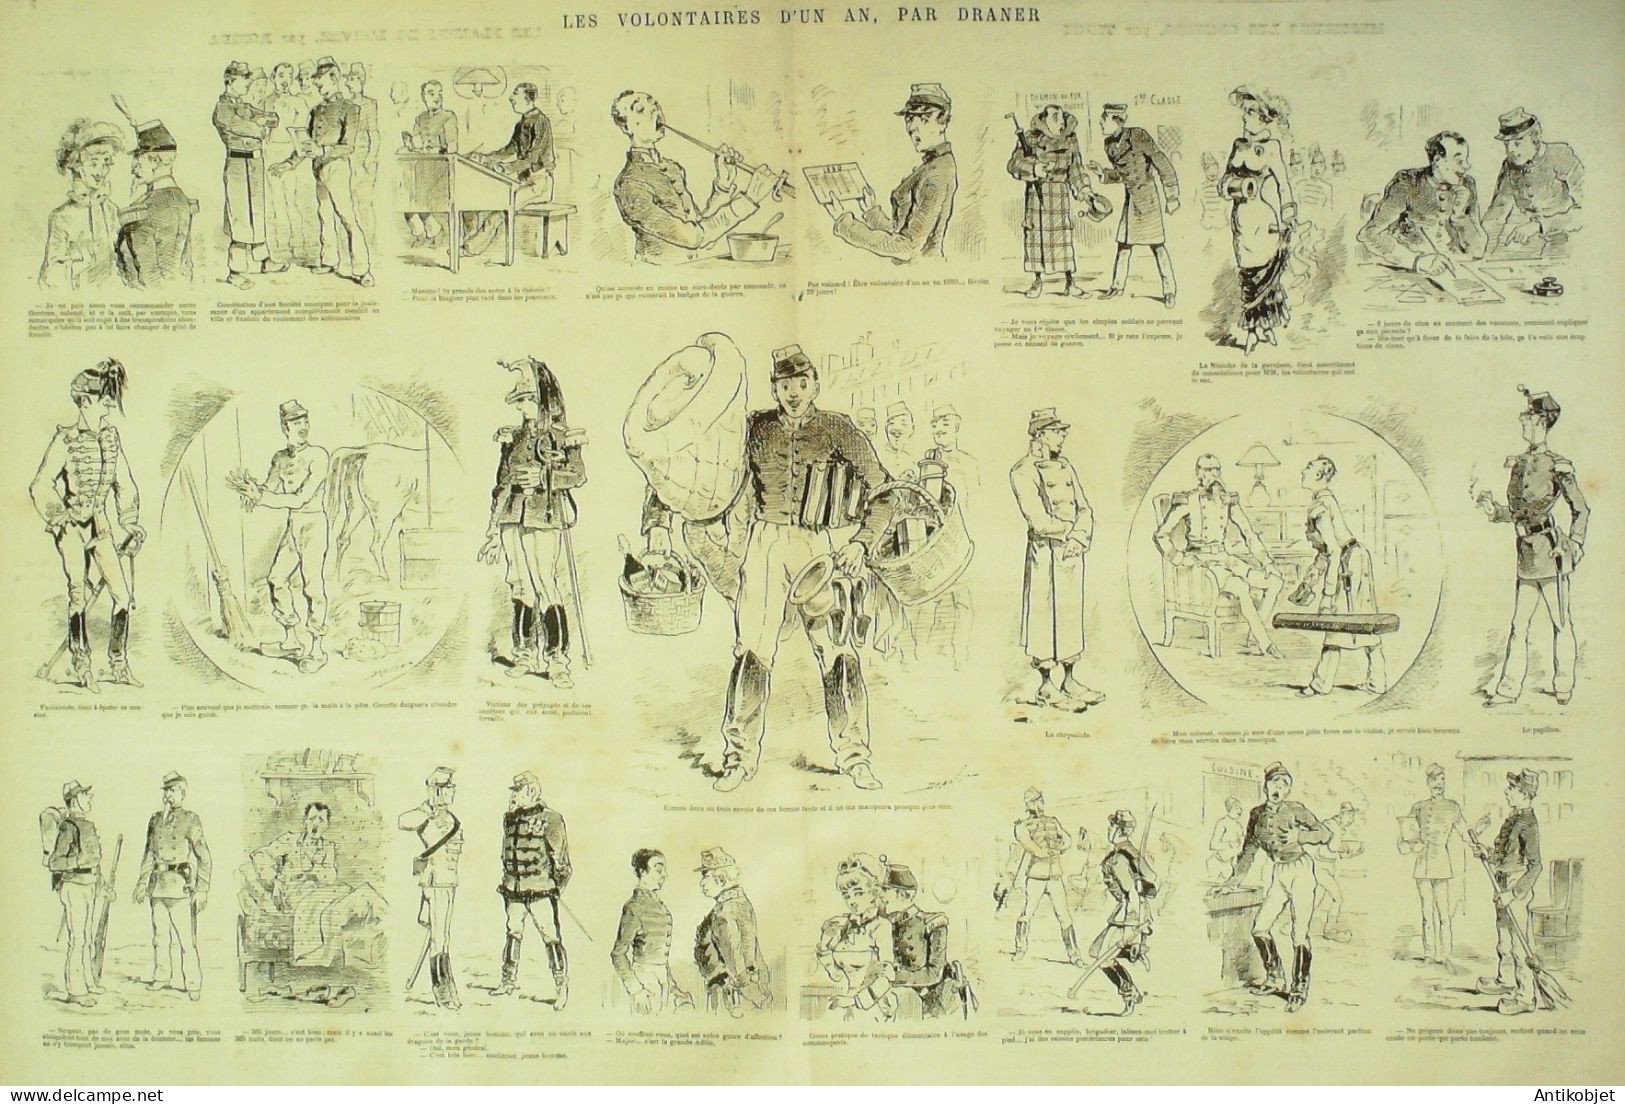 LES VOLONTAIRES D'UN AN, PAR DRANER
CHEMIN DE FER
1re CLASSE
— Je ne puis assez vous recommander notre
Gontran, colonel, et si la nuit, par exemple, vous
remarquiez qu'il soit sujet à des transpirations abon-
dantes, n'hésitez pas à lui faire changer de gilet de
flanelle.
Constitution d'une Société anonyme pour la jouis-
sance d'un appartement complètement meublé en
ville et fixation du roulement des actionnaires.
— Mazette! tu prends des notes à la théorie?
— Pour la blaguer plus tard dans les journaux.
Qu'on accorde au moins un cure-dents par escouade, ce
n'est pas ça qui ruinerait le budget de la guerre.
Pas veinard! Être volontaire d'un an en 1880... février
29 jours!
— Je vous répète que les simples soldats ne peuvent
voyager en 1re classe.
— Mais je voyage civilement... Si je rate l'express, je
passe en conseil de guerre.
La Niniche de la garnison, tient assortiment
de consolations pour MM. les volontaires qui ont
le sac.
— 8 jours de clou au moment des vacances, comment expliquer
ça aux parents?
— Dis-leur qu'à force de te faire de la bile, ça t'a valu une érup-
tion de clous.
Fantaisiste, tient à épater sa cou-
sine.
— Plus souvent que je mettrais, comme ça, la main à la pâte. Cocotte daignera attendre
que je sois ganté.
Victime des préjugés et de ses
ancêtres qui, eux aussi, portaient
ferraille.
Encore deux ou trois envois de ma bonne tante et il ne me manquera presque plus rien.
La chrysalide.
— Mon colonel, comme je suis d'une assez jolie force sur le violon, je serais bien heureux
de faire mon service dans la musique.
Le papillon.
CUISINE
— Sergent, pas de gros mots, je vous prie, vous
— 365 jours... c'est bien; mais il y a aussi les
365 nuits, dont on ne parle pas.
— C'est vous, jeune homme, qui avez un oncle aux
dragons de la garde?
— Oui, mon général.
— C'est très bien... continuez, jeune homme.
— Où souffrez-vous, quel est votre genre d'affection?
— Major... c'est la grande Adèle.
Cours pratique de tactique élémentaire à l'usage des
commençants.
— Je vous en supplie, brigadier, laissez-moi trotter à
pied... j'ai des raisons postérieures pour cela!
Rien n'excite l'appétit comme l'enivrant parfum
de la soupe.
Antikobjet